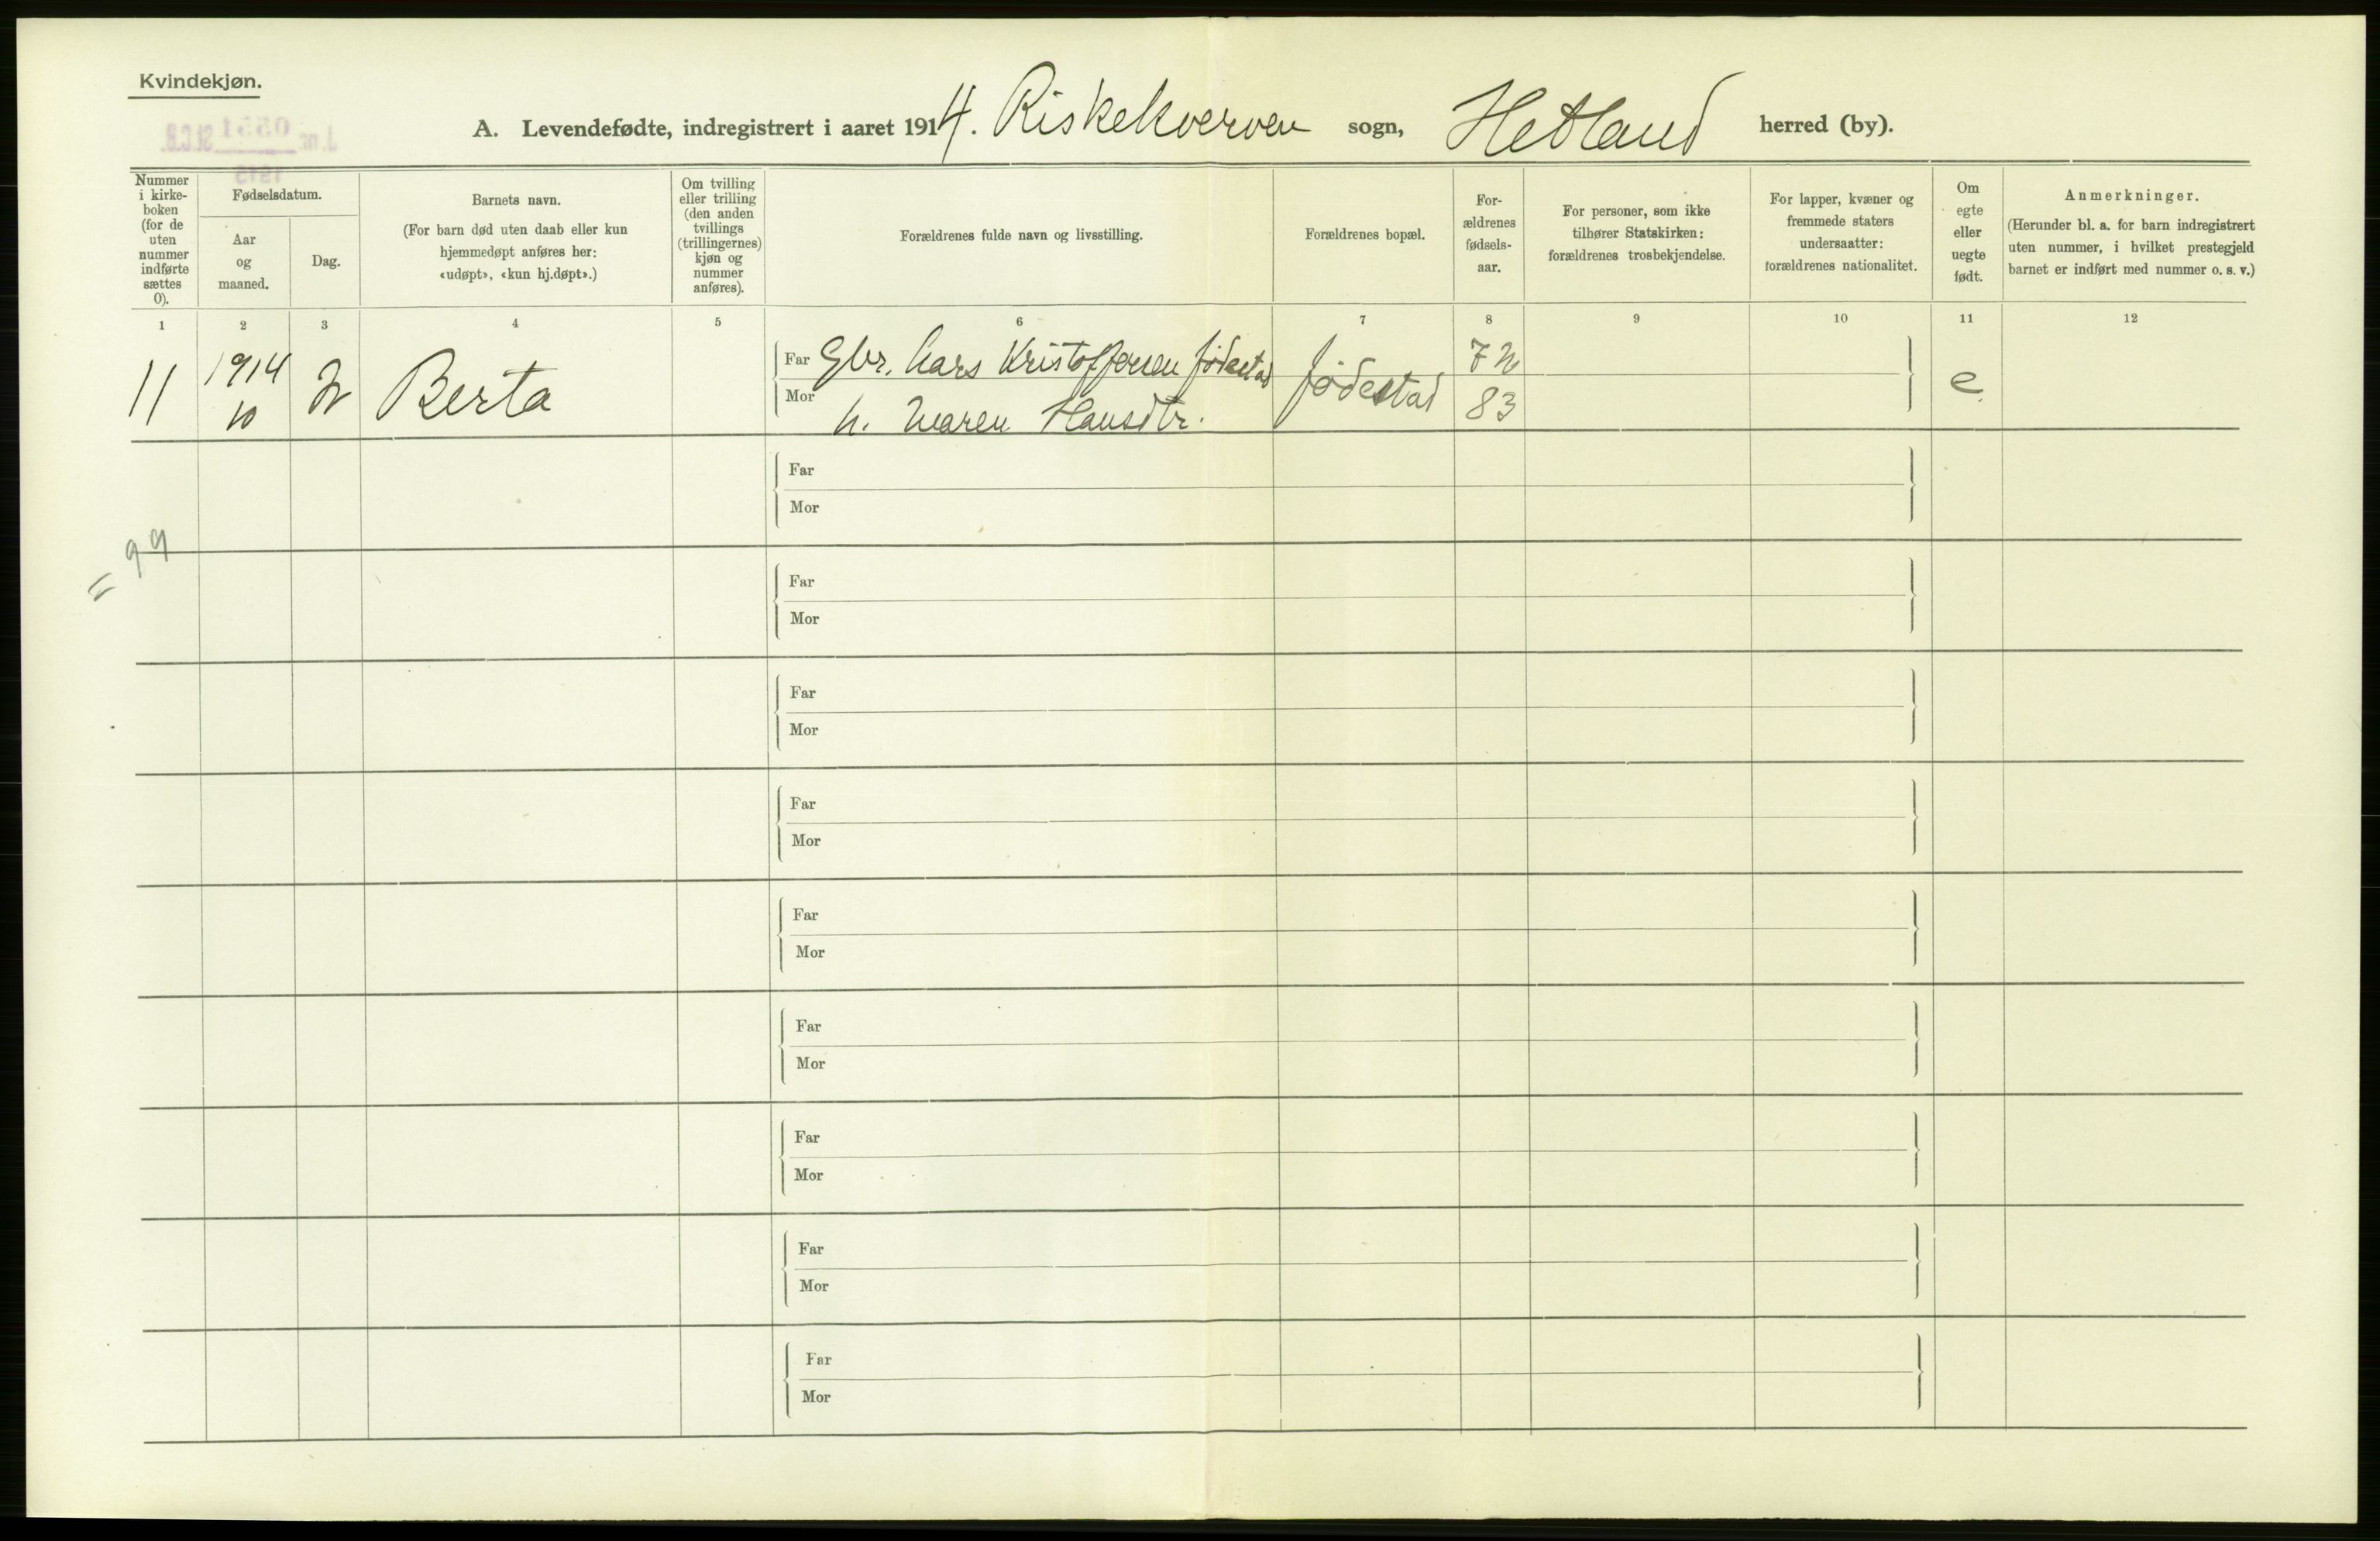 Kvindekjøn.
A. Levendefødte, indregistrert i aaret 1914. Riskekverven sogn, Hetland herred (by).
J.nr. 0551 St.C.B.
1915
Nummer i kirke-boken (for de uten nummer indførte sættes 0).
Fødselsdatum.
Aar og maaned.
Dag.
Barnets navn.
(For barn død uten daab eller kun hjemmedøpt anføres her: «udøpt», «kun hj.døpt».)
Om tvilling eller trilling (den anden tvillings (trillingernes) kjøn og nummer anføres).
Forældrenes fulde navn og livsstilling.
Forældrenes bopæl.
For-ældrenes fødsels-aar.
For personer, som ikke tilhører Statskirken: forældrenes trosbekjendelse.
For lapper, kvæner og fremmede staters undersaatter: forældrenes nationalitet.
Om egte eller uegte født.
Anmerkninger.
(Herunder bl. a. for barn indregistrert uten nummer, i hvilket prestegjeld barnet er indført med nummer o. s. v.)
1 2 3 4 5 6 7 8 9 10 11 12
11 1914 10 Berta
Far Gbr. Lars Kristoffersen Jødestad Jødestad 72 e.
Mor h. Maren Hansdtr. 83
Far
Mor
= 99
Far
Mor
Far
Mor
Far
Mor
Far
Mor
Far
Mor
Far
Mor
Far
Mor
Far
Mor